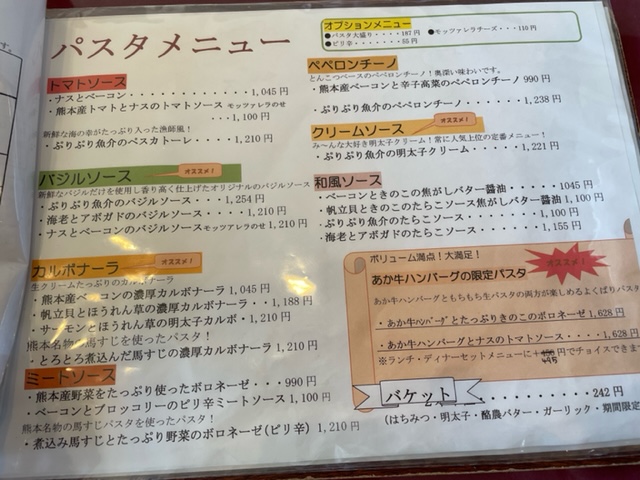 パスタメニュー
オプションメニュー
●パスタ大盛り・・・・187円 ●モッツァレラチーズ・・・110円
●ピリ辛・・・・・・・55円
トマトソース
・ナスとベーコン・・・・・・・・・・1,045円
・熊本産トマトとナスのトマトソース モッツァレラのせ
・・・1,100円
新鮮な海の幸がたっぷり入った漁師風！
・ぷりぷり魚介のペスカトーレ・・・1,210円
バジルソース
オススメ！
新鮮なバジルだけを使用し香り高く仕上げたオリジナルのバジルソース
・ぷりぷり魚介のバジルソース・・・1,254円
・海老とアボガドのバジルソース・・・1,210円
・ナスとベーコンのバジルソースモッツァレラのせ1,210円
カルボナーラ
オススメ！
生クリームたっぷりのカルボナーラ
・熊本産ベーコンの濃厚カルボナーラ 1,045円
・帆立貝とほうれん草の濃厚カルボナーラ・・1,188円
・サーモンとほうれん草の明太子カルボ・1,210円
熊本名物の馬すじを使ったパスタ！
・とろとろ煮込んだ馬すじの濃厚カルボナーラ 1,210円
ミートソース
・熊本産野菜をたっぷり使ったボロネーゼ・・・990円
・ベーコンとブロッコリーのピリ辛ミートソース 1,100円
熊本名物の馬すじパスタを使ったパスタ！
・煮込み馬すじとたっぷり野菜のボロネーゼ(ピリ辛) 1,210円
ペペロンチーノ
とんこつベースのペペロンチーノ！奥深い味わいです。
・熊本産ベーコンと辛子高菜のペペロンチーノ 990円
・ぷりぷり魚介のペペロンチーノ・・・・1,238円
クリームソース
オススメ！
み〜んな大好き明太子クリーム！常に人気上位の定番メニュー！
・ぷりぷり魚介の明太子クリーム・・・・1,221円
和風ソース
・ベーコンときのこの焦がしバター醤油・・・・・1045円
・帆立貝ときのこのたらこソース焦がしバター醤油 1,100円
・ぷりぷり魚介のたらこソース・・・・1,100円
・海老とアボガドのたらこソース・・・・1,155円
ボリューム満点！大満足！
オススメ！
あか牛ハンバーグの限定パスタ
あか牛ハンバーグともちもち生パスタの両方が楽しめるよくばりパスタ
・あか牛ハンバーグとたっぷりきのこのボロネーゼ 1,628円
・あか牛ハンバーグとナスのトマトソース・・・・1,628円
※ランチ・ディナーセットメニューに＋円でチョイスできま
バケット・・・・・・・・・・・・242円
(はちみつ・明太子・酪農バター・ガーリック・期間限定